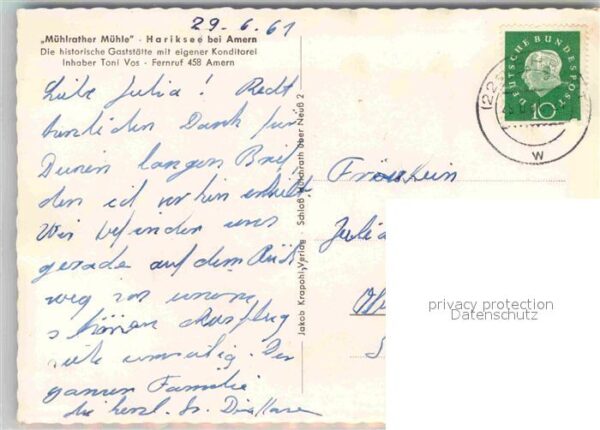 29. 6. 61
„Mühlrather Mühle" - Hariksee bei Amern
Die historische Gaststätte mit eigener Konditorei
Inhaber Toni Vos - Fernruf 458 Amern
Liebe Julia! Recht
herzlichen Dank für
Deinen langen Brief
den ich vorhin erhielt
Wir befinden uns
gerade auf dem Rück
weg von unserem
schönen Ausflug
Der
ganzen Familie
die herzl.
Jakob Krapohl-Verlag Schloß Hülchrath über Neuß 2
DEUTSCHE BUNDESPOST
10
(22
W
Fräulein
Julia
privacy protection
Datenschutz